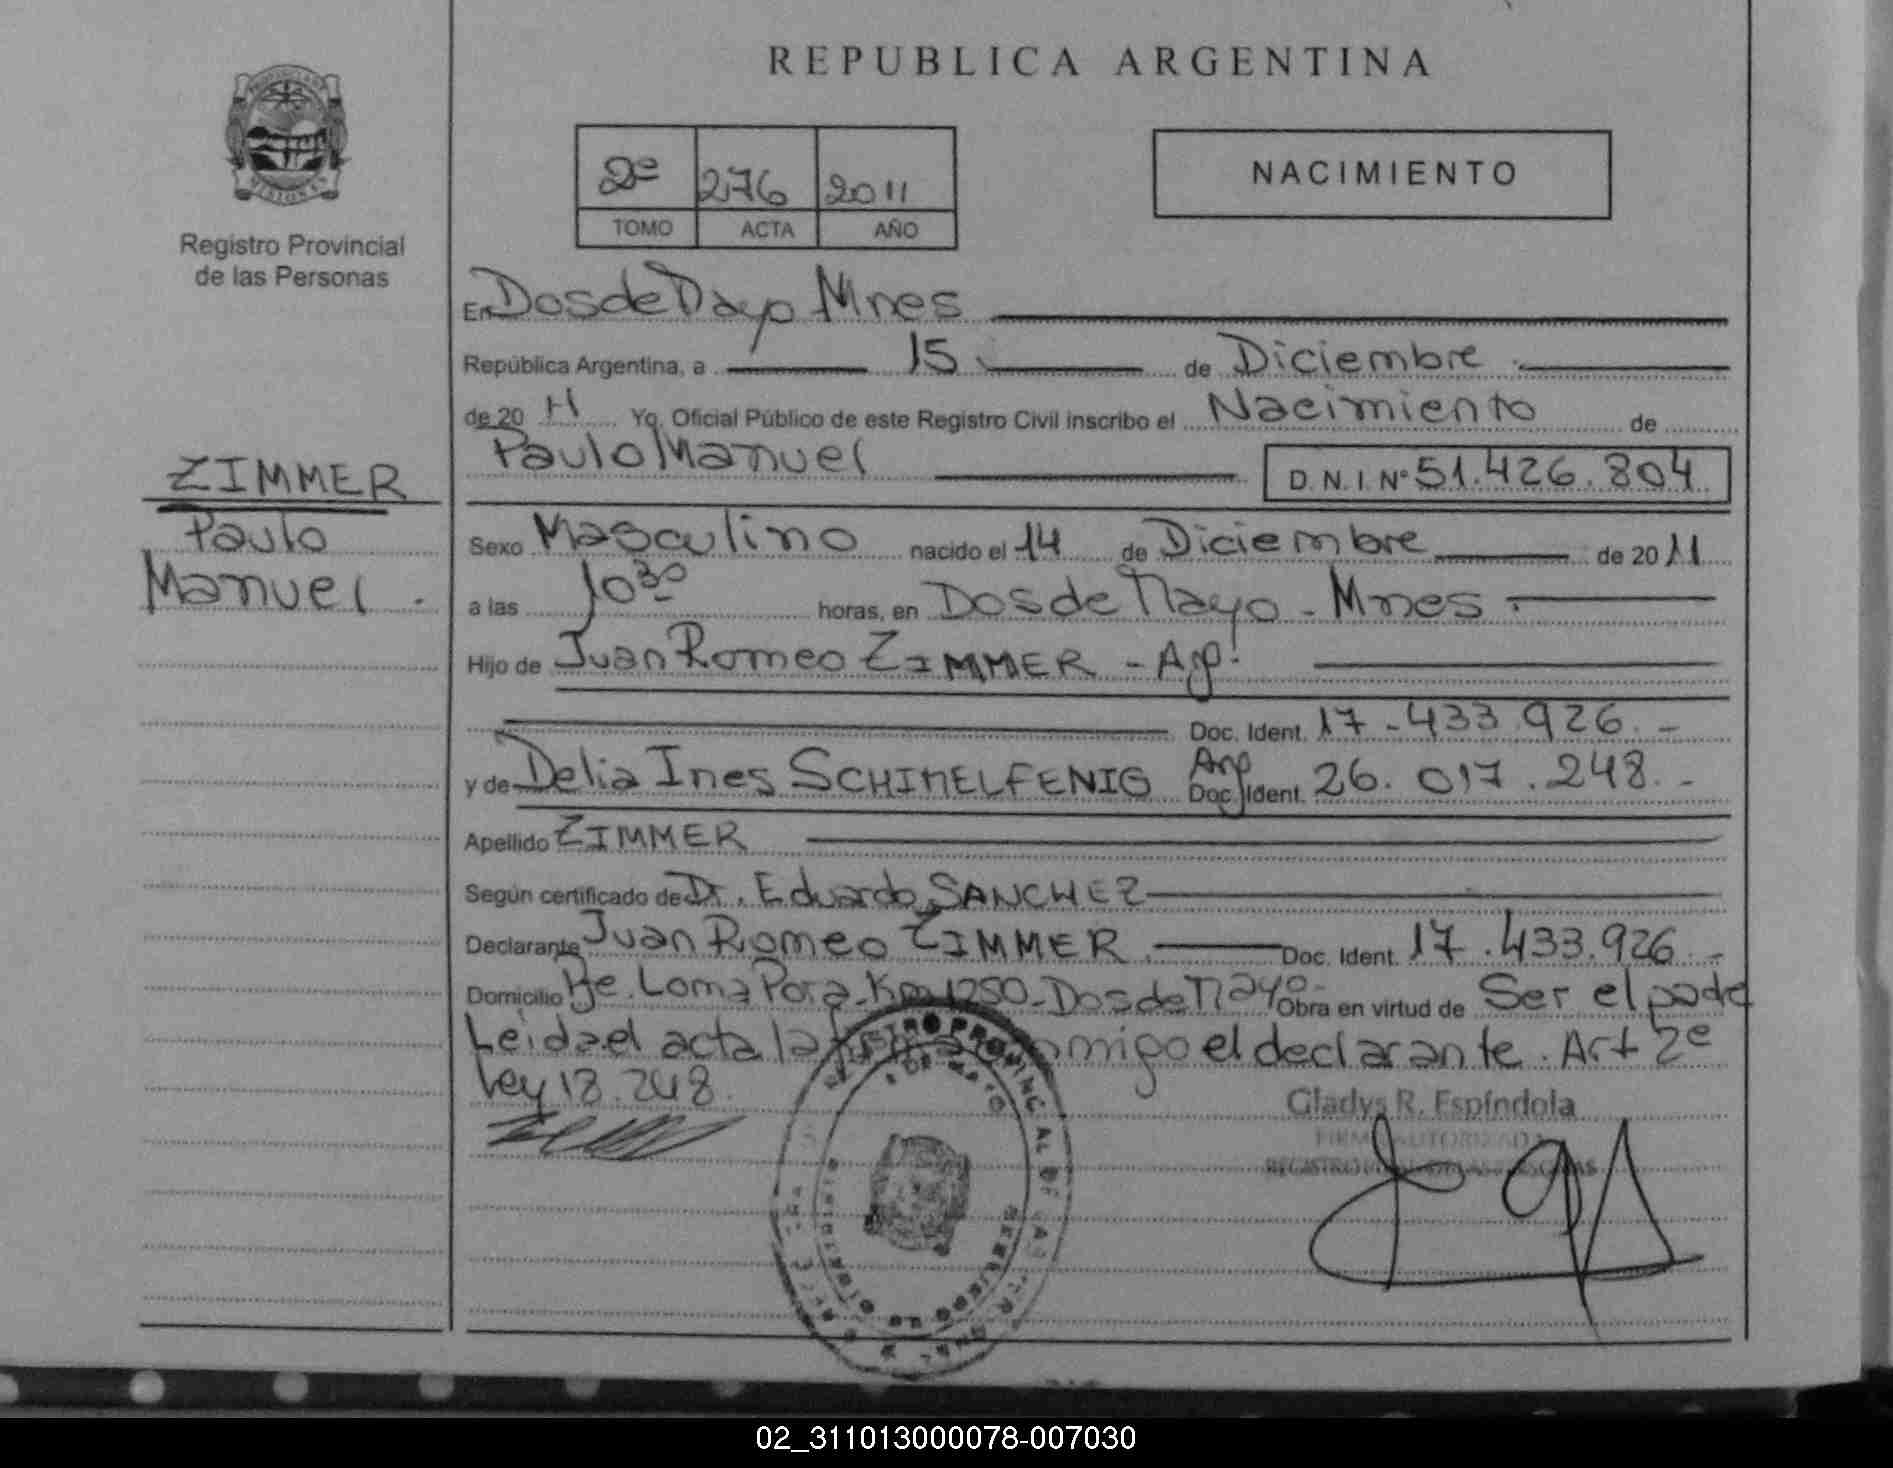 REPUBLICA ARGENTINA
PROVINCIA DE
MISIONES
Registro Provincial
de las Personas
2º 276 2011
TOMO ACTA AÑO
NACIMIENTO
ZIMMER
Paulo
Manuel.
En Dos de Mayo Mnes
República Argentina, a 15 de Diciembre.
de 20 11 Yo, Oficial Público de este Registro Civil inscribo el Nacimiento de
Paulo Manuel D.N.I. Nº 51.426.804
Sexo Masculino nacido el 14 de Diciembre de 20 11
a las 10 30 horas, en Dos de Mayo - Mnes.
Hijo de Juan Romeo ZIMMER - Arg.
Doc. Ident. 17.433.926.-
y de Delia Ines SCHIMELFENIG Arg Doc. Ident. 26.017.248.-
Apellido ZIMMER
Según certificado de Dr. Eduardo SANCHEZ
Declarante Juan Romeo ZIMMER. Doc. Ident. 17.433.926.-
Domicilio Pje. Loma Pora - Km 1250 - Dos de Mayo - Obra en virtud de Ser el padre
Leida el acta la firma conmigo el declarante. Art 2º
Ley 18.248.
Gladys R. Espíndola
FIRMA AUTORIZADA
REGISTRO PROVINCIAL DE LAS
02_311013000078-007030